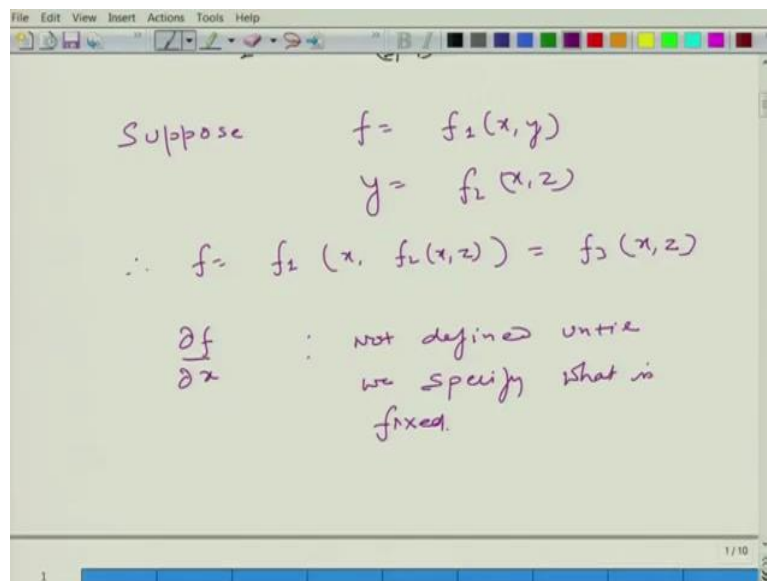 File Edit View Insert Actions Tools Help
B I
Suppose f = f1(x, y)
y = f2(x, z)
∴ f = f1 (x, f2(x, z)) = f3 (x, z)
∂f/∂x : Not defined until
we specify what is
fixed.
1 / 10
1